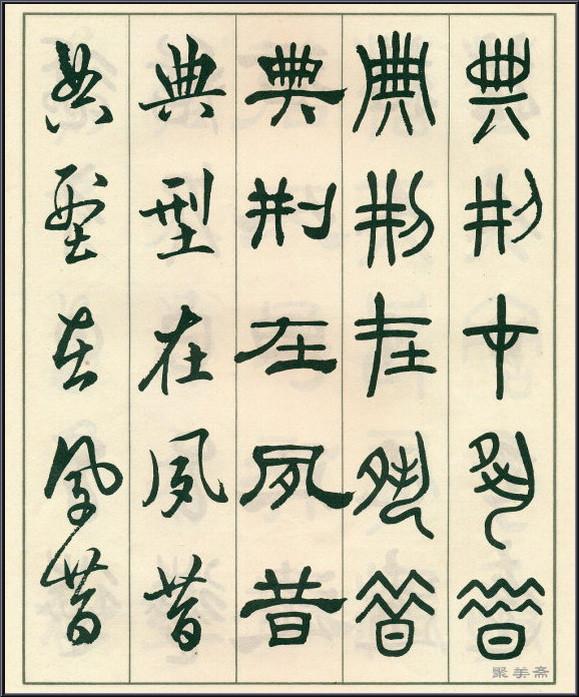 典刑在夙昔
典刑在夙昔
典刑在夙昔
典型在夙昔
典型在夙昔
聚美斋